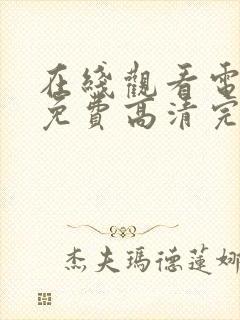 在綫觀看電
免費高清完
杰夫瑪德蓮娜